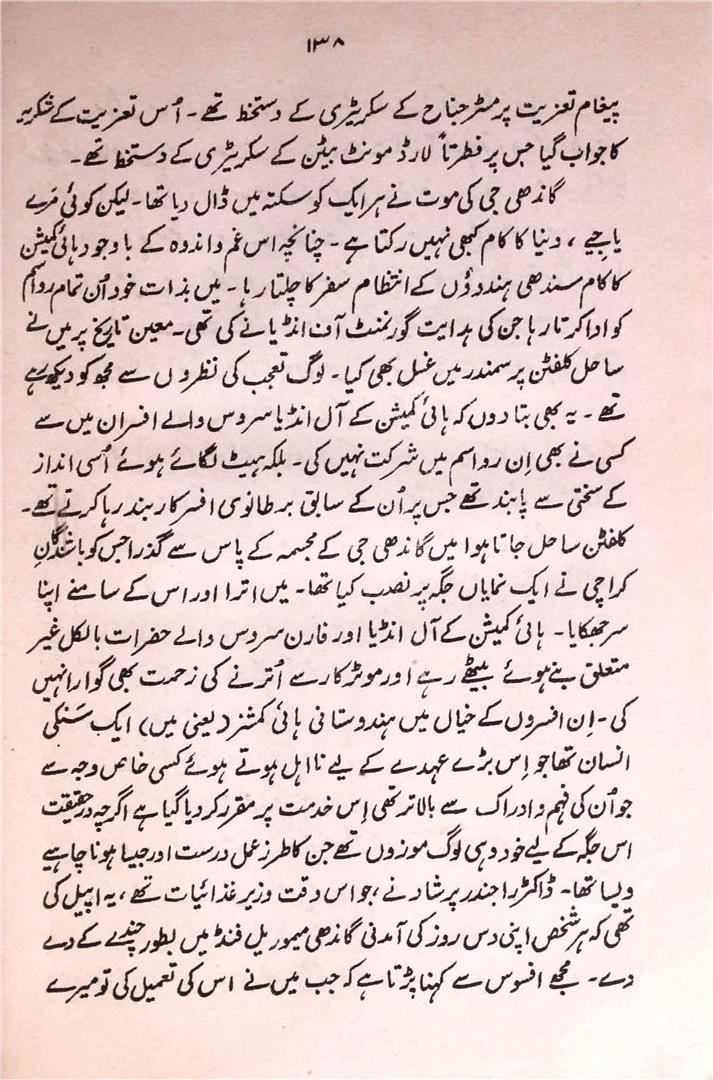 ۱۳۸
پیغام تعزیت پر مسٹر جناح کے سکریٹری کے دستخط تھے۔ اُس تعزیت کے شکریہ
کا جواب گیا جس پر فطرتاً لارڈ مونٹ بیٹن کے سکریٹری کے دستخط تھے۔
گاندھی جی کی موت نے ہر ایک کو سکتہ میں ڈال دیا تھا۔ لیکن کوئی مَرے
یا جیے، دنیا کا کام کبھی نہیں رکتا ہے۔ چنانچہ اس غم و اندوہ کے باوجود ہائی کمیشن
کا کام سندھی ہندوؤں کے انتظام سفر کا چلتا رہا۔ میں بذات خود اُن تمام رواسم
کو ادا کرتا رہا جن کی ہدایت گورنمنٹ آف انڈیا نے کی تھی۔ معین تاریخ پر میں نے
ساحل کلفٹن پر سمندر میں غسل بھی کیا۔ لوگ تعجب کی نظروں سے مجھ کو دیکھ رہے
تھے۔ یہ بھی بتا دوں کہ ہائی کمیشن کے آل انڈیا سروس والے افسران میں سے
کسی نے بھی اِن رواسم میں شرکت نہیں کی۔ بلکہ ہیٹ لگائے ہوئے اُسی انداز
کے سختی سے پابند تھے جس پر اُن کے سابق برطانوی افسر کاربند رہا کرتے تھے۔
کلفٹن ساحل جاتا ہوا میں گاندھی جی کے مجسمہ کے پاس سے گذرا جس کو باشندگانِ
کراچی نے ایک نمایاں جگہ پر نصب کیا تھا۔ میں اترا اور اس کے سامنے اپنا
سر جھکایا۔ ہائی کمیشن کے آل انڈیا اور فارن سروس والے حضرات بالکل غیر
متعلق بنے ہوئے بیٹھے رہے اور موٹر کار سے اُترنے کی زحمت بھی گوارا نہیں
کی۔ اِن افسروں کے خیال میں ہندوستانی ہائی کمشنر (یعنی میں) ایک سَنکی
انسان تھا جو اِس بڑے عہدے کے لیے نااہل ہوتے ہوئے کسی خاص وجہ سے
جو اُن کی فہم و ادراک سے بالاتر تھی اِس خدمت پر مقرر کر دیا گیا ہے اگرچہ درحقیقت
اس جگہ کے لیے خود وہی لوگ موزوں تھے جن کا طرز عمل درست اور جیسا ہونا چاہیے
ویسا تھا۔ ڈاکٹر راجندر پرشاد نے، جو اس وقت وزیر غذائیات تھے، یہ اپیل کی
تھی کہ ہر شخص اپنی دس روز کی آمدنی گاندھی میموریل فنڈ میں بطور چندے کے دے
دے۔ مجھے افسوس سے کہنا پڑتا ہے کہ جب میں نے اس کی تعمیل کی تو میرے